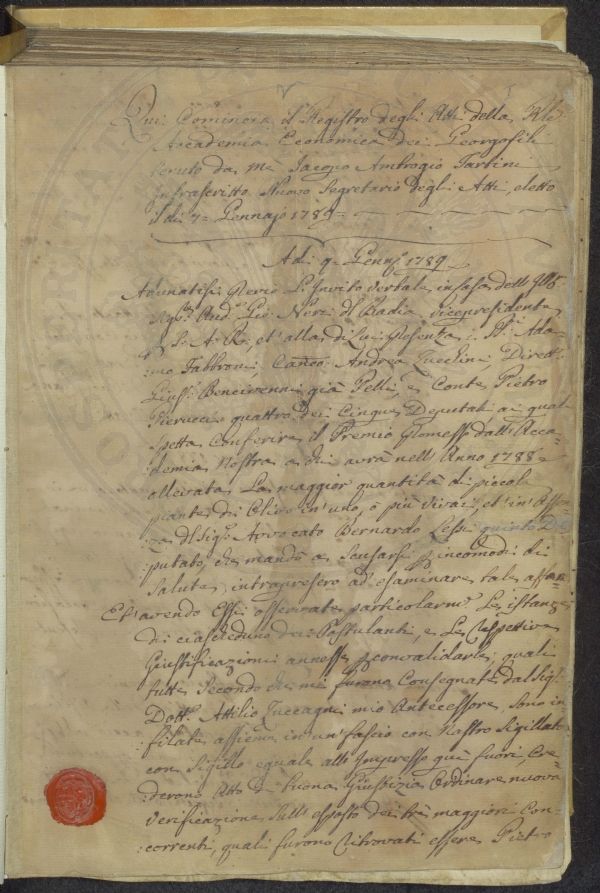 Qui Comincera il Registro degli Atti della Rle
Accademia Economica dei Georgofili
tenuto da me Jacopo Ambrogio Tartini
Infrascritto Nuovo Segretario degli Atti, eletto
il dì 7 Gennajo 1789
Adì 9 Genn.o 1789
Adunatisi previo L'Invito verbale in casa dell' Ill
Aud.e Gio: Neri dl Badia, vicepresidente
S. A. R., et' alla di Lui presenza i SS.i Ada=
:mo Fabbroni, Canco. Andrea Zucchini, Dirett.
Gius.e Bencivenni già Pelli, e Conte Pietro
Pierucci quattro dei Cinque Deputati ai quali
spetta Conferire il Premio promesso dall' Acca=
:demia Nostra a chi avrà nell' Anno 1788
allevata La maggior quantità di piccole
piante di Olivo in'uno, o più vivai, et' in' Assen
za dl Sig.e Avvocato Bernardo Lessi quinto De
:putato, che mandò a Scusarsi p incomodi di
Salute, intrapresero ad' esaminare tale affare
Et' avendo Essi osservate particolarm.e Le istanze
di ciascheduno dei Postulanti, e Le respettive
Giustificazioni annesse p convalidarle, quali
tutte Secondo che mi furono Consegnate dal Sig.
Dott. Attilio Zuccagni mio Antecessore, Sono in
:filate assieme in'un' fascio con Nastro Sigillato
con Sigillo eguale allo Impresso quì fuori, Cre
:derono Atto di buona Giustizia Ordinare nuova
verificazione Sull' esposto dei trè maggiori Con=
:correnti, quali furono ritrovati essere Pietro